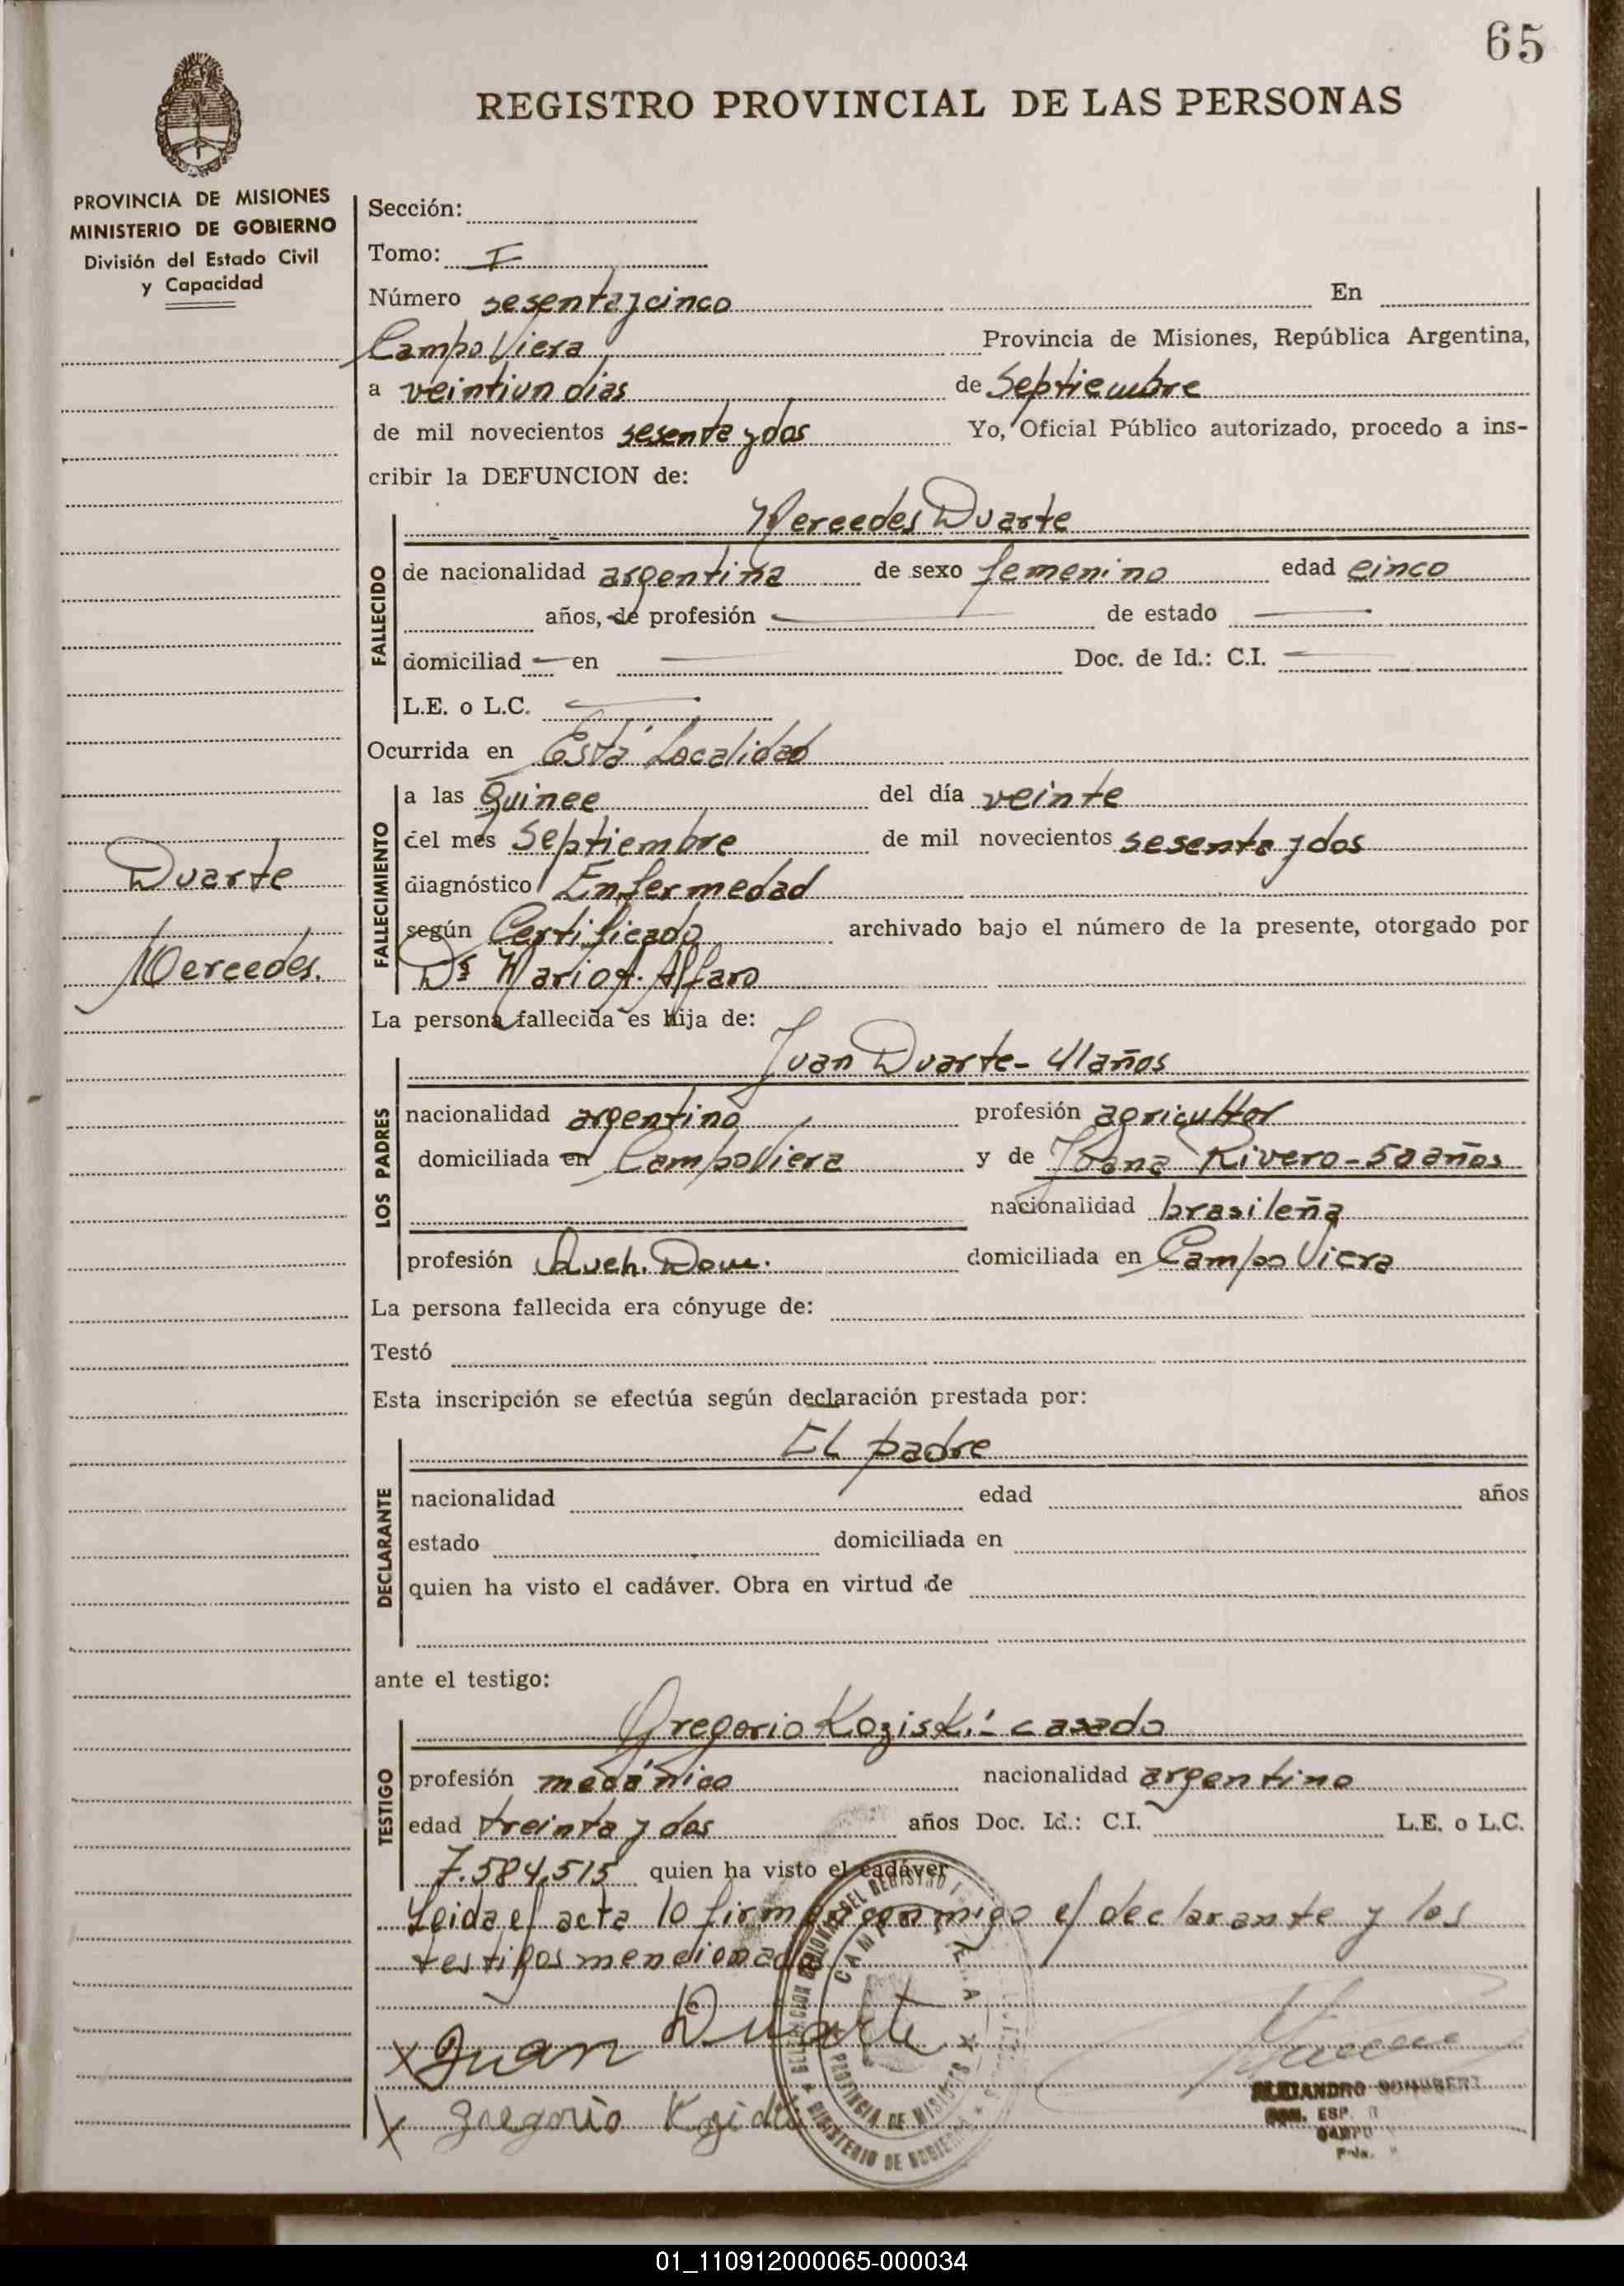 65
REGISTRO PROVINCIAL DE LAS PERSONAS
PROVINCIA DE MISIONES
MINISTERIO DE GOBIERNO
División del Estado Civil
y Capacidad
Sección:
Tomo: I
Número sesenta y cinco En
Campo Viera Provincia de Misiones, República Argentina,
a veintiun dias de Septiembre
de mil novecientos sesenta y dos Yo, Oficial Público autorizado, procedo a ins-
cribir la DEFUNCION de:
Mercedes Duarte
FALLECIDO
de nacionalidad argentina de sexo femenino edad cinco
años, de profesión — de estado —
domiciliad — en — Doc. de Id.: C.I. —
L.E. o L.C. —
Ocurrida en Esta Localidad
FALLECIMIENTO
a las Quince del día veinte
del mes Septiembre de mil novecientos sesenta y dos
diagnóstico Enfermedad
según Certificado archivado bajo el número de la presente, otorgado por
Dr Mario A. Alfaro
Duarte
Mercedes.
La persona fallecida es hija de:
Juan Duarte - 41 años
LOS PADRES
nacionalidad argentino profesión agricultor
domiciliada en Campo Viera y de Rivero - 50 años
nacionalidad brasileña
profesión Queh. Dom. domiciliada en Campo Viera
La persona fallecida era cónyuge de:
Testó
Esta inscripción se efectúa según declaración prestada por:
El padre
DECLARANTE
nacionalidad edad años
estado domiciliada en
quien ha visto el cadáver. Obra en virtud de
ante el testigo:
Gregorio Koziski - casado
TESTIGO
profesión mecánico nacionalidad argentino
edad treinta y dos años Doc. Id.: C.I. L.E. o L.C.
7.584.515 quien ha visto el cadáver
Leida el acta lo firman conmigo el declarante y los
testigos mencionados
x Juan Duarte
x Gregorio
PROVINCIA DE MISIONES
MINISTERIO DE GOBIERNO
ALEJANDRO
01_110912000065-000034